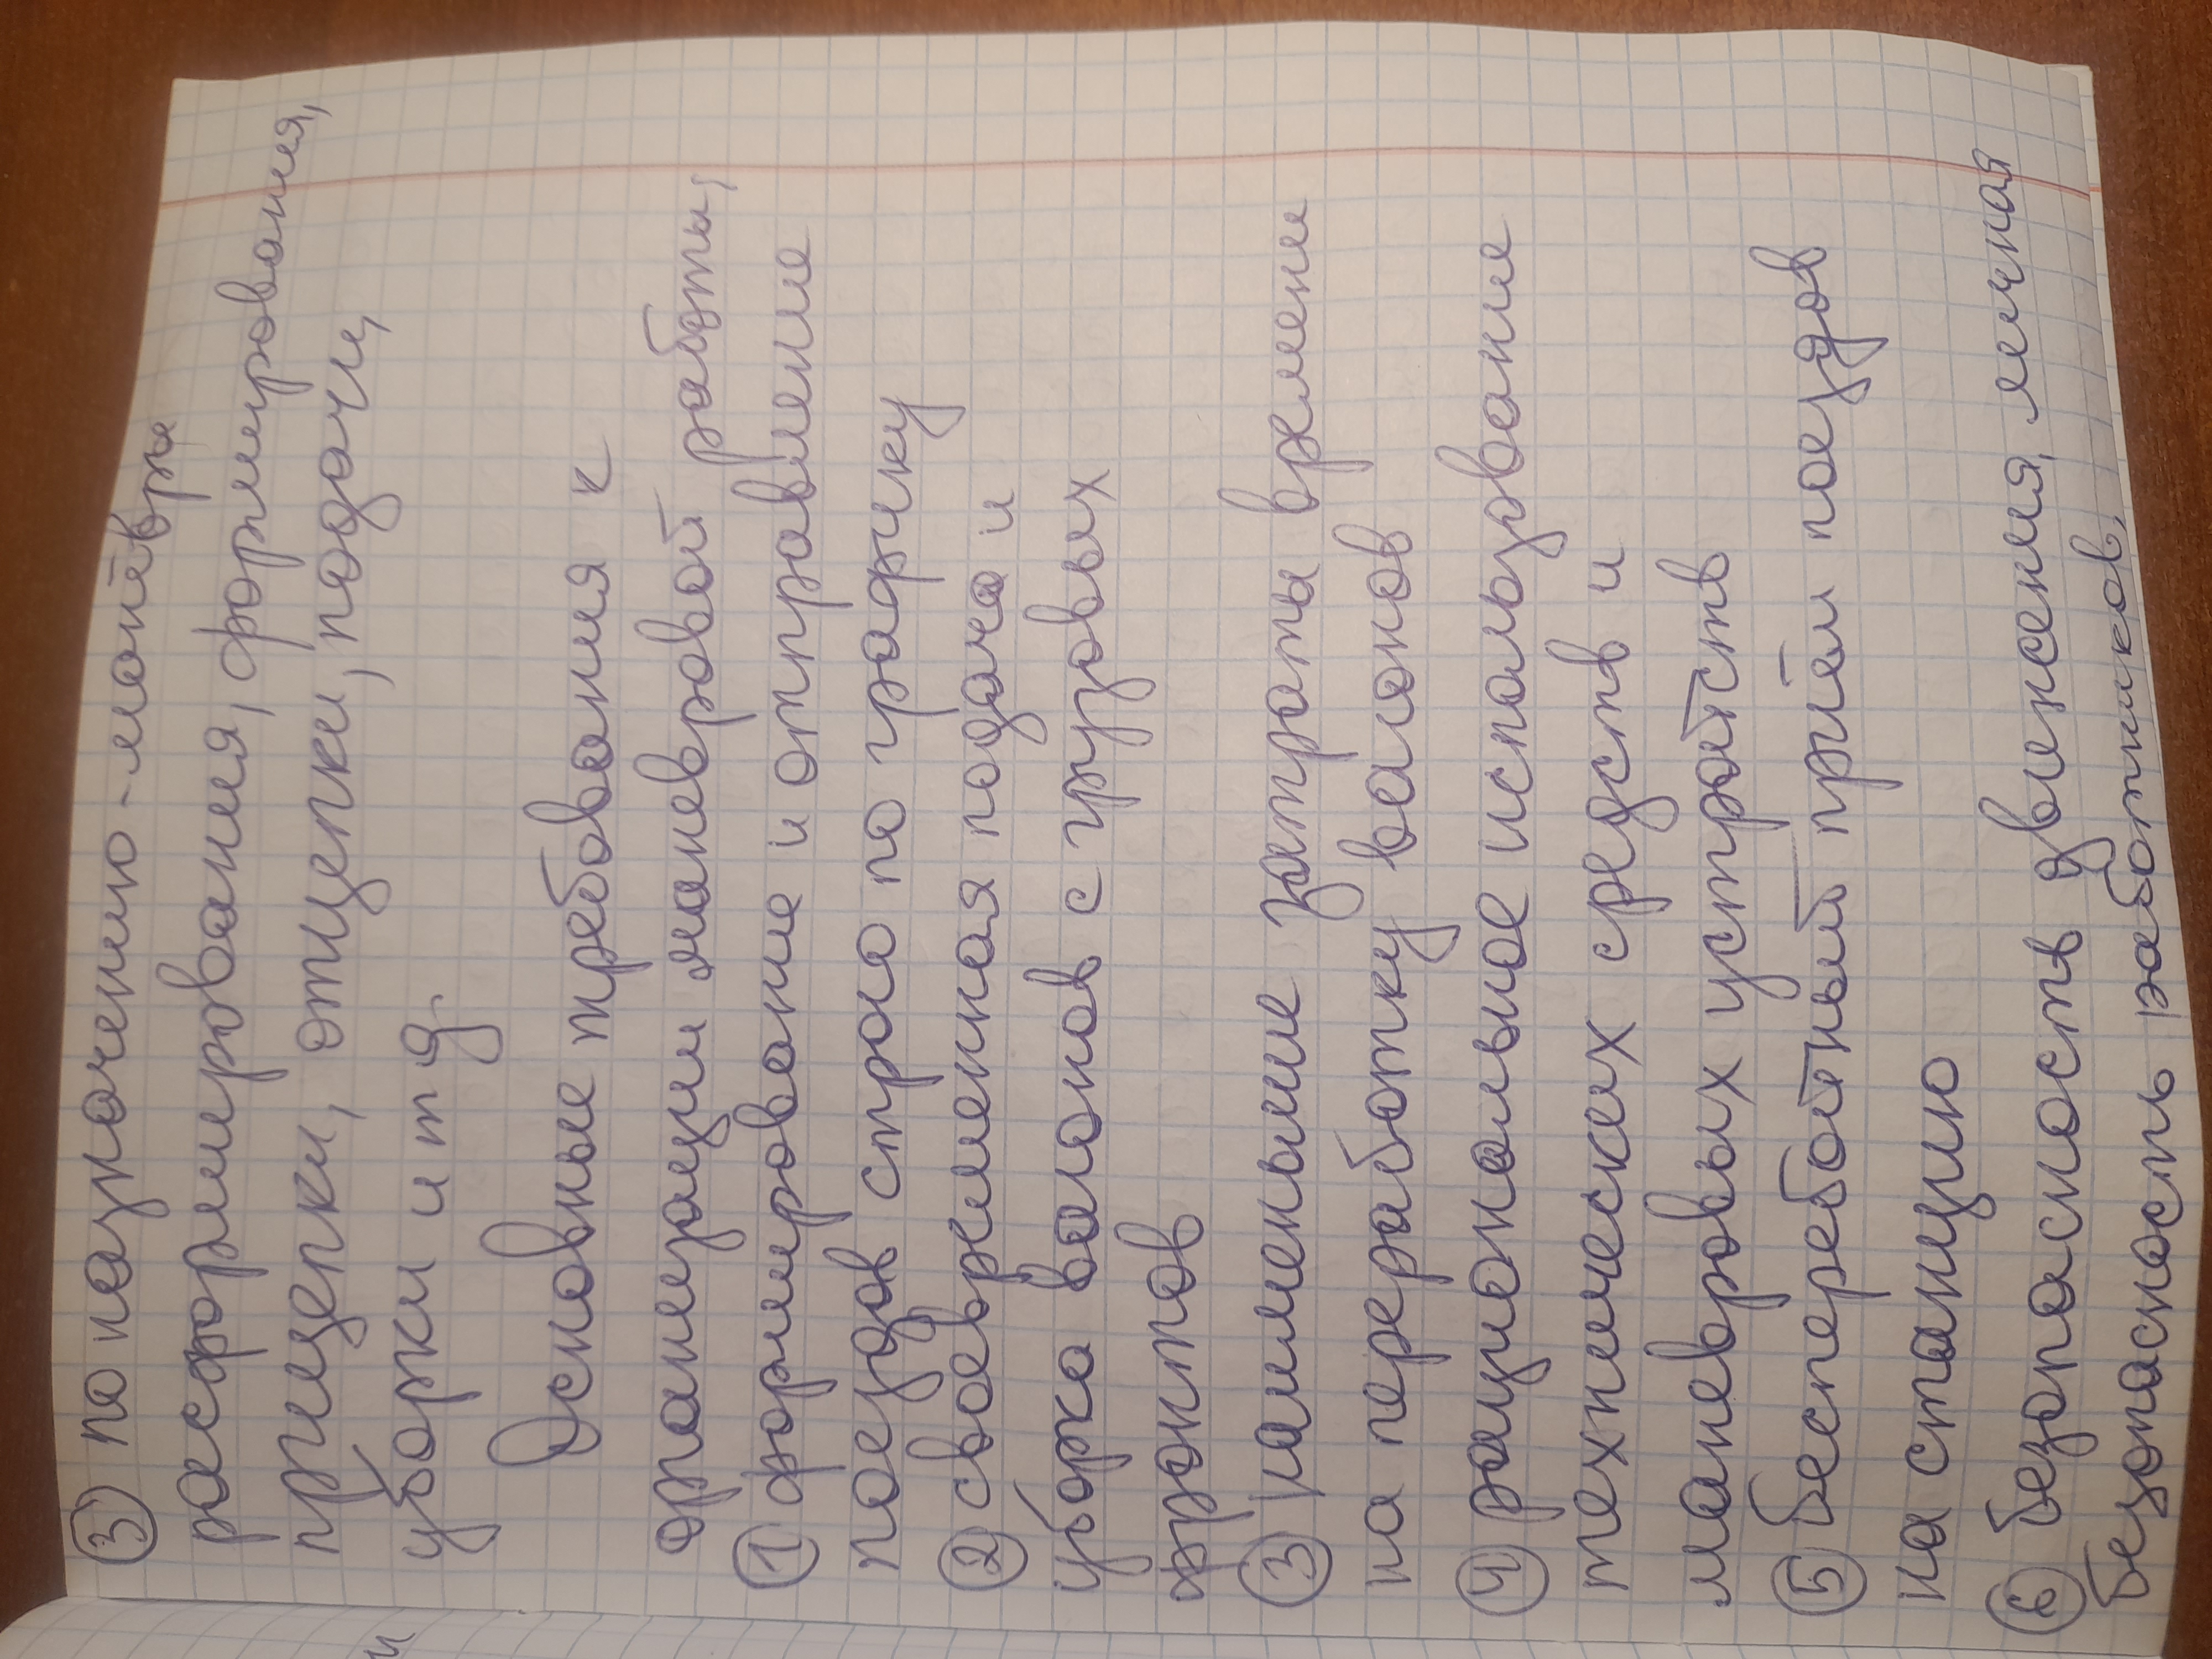 ③ по назначению - манёвры
расформирования, формирования,
прицепки, отцепки, подачи,
уборки и т д.
Основные требования к
организации маневровой работы,
① формирование и отправление
поездов строго по графику
② своевременная подача и
уборка вагонов с грузовых
фронтов
③ уменьшение затраты времени
на переработку вагонов
④ рациональное использование
технических средств и
маневровых устройств
⑤ бесперебойный приём поездов
на станцию
⑥ безопасность движения, личная
безопасность работников.
и